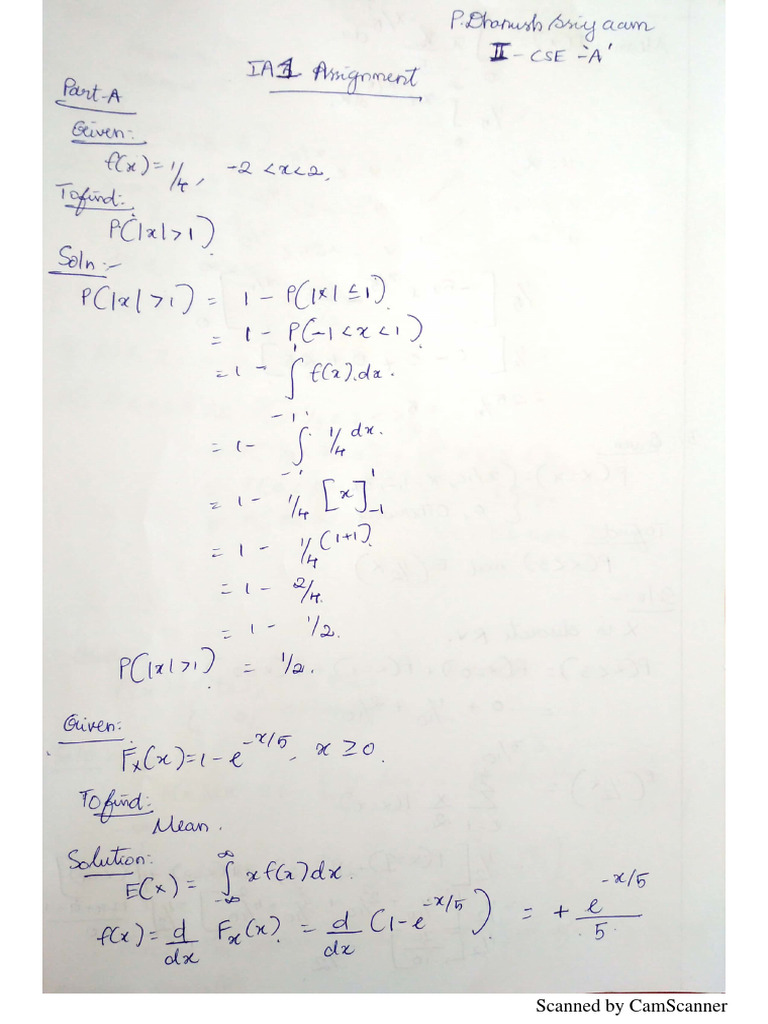 P. Dhanush Sriyaam
II - CSE - 'A'
IA1 Assignment
Part-A
Given:
f(x) = 1/4, -2 < x < 2,
To find:
P(|x| > 1)
Soln:-
P(|x| > 1) = 1 - P(|x| ≤ 1)
= 1 - P(-1 < x < 1)
= 1 - ∫_{-1}^{1} f(x).dx.
= 1 - ∫_{-1}^{1} 1/4 dx.
= 1 - 1/4 [x]_{-1}^{1}
= 1 - 1/4 (1+1)
= 1 - 2/4.
= 1 - 1/2.
P(|x| > 1) = 1/2.
Given:
F_x(x) = 1 - e^{-x/5}, x ≥ 0.
To find:
Mean.
Solution:
E(x) = ∫_{-∞}^{∞} x f(x) dx.
f(x) = d/dx F_x(x) = d/dx (1 - e^{-x/5}) = + e^{-x/5}/5.
Scanned by CamScanner